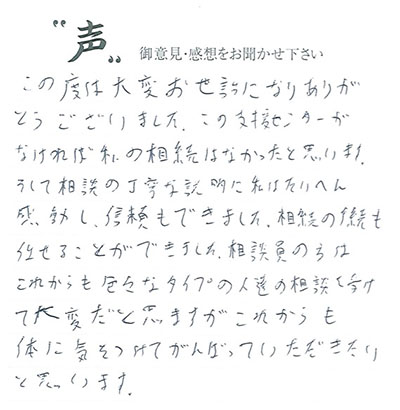 "声" 御意見・感想をお聞かせ下さい
この度は大変お世話になりありが
とうございました。この支援センターが
なければ私の相続はなかったと思います。
そして相談の丁寧な説明に私はたいへん
感動し、信頼もできました。相続の後も
任せることができました。相談員の方は
これからも色々なタイプの人達の相談を受け
て大変だと思ますがこれからも
体に気をつけてがんばっていただきたい
と思います。